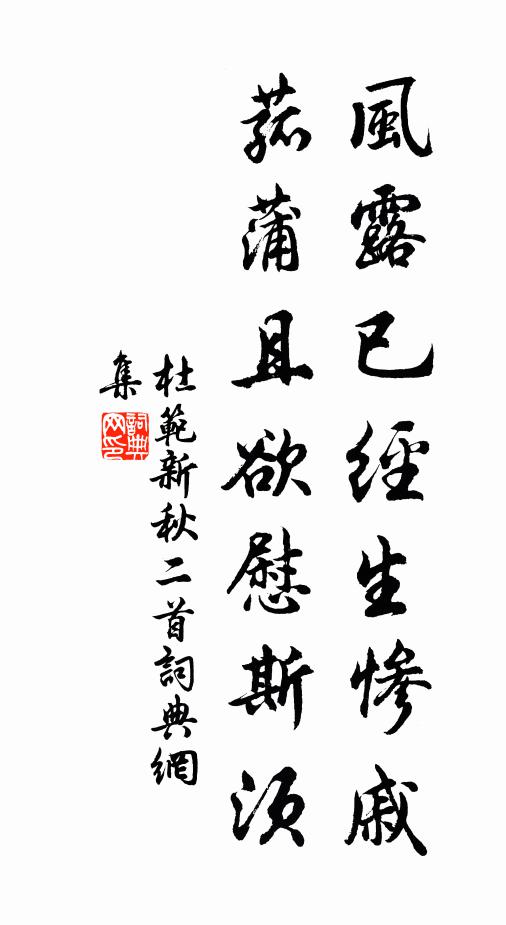 風露已經生慘戚
菰蒲且欲慰斯須
杜範新秋二首詞典網
集
詞典网印